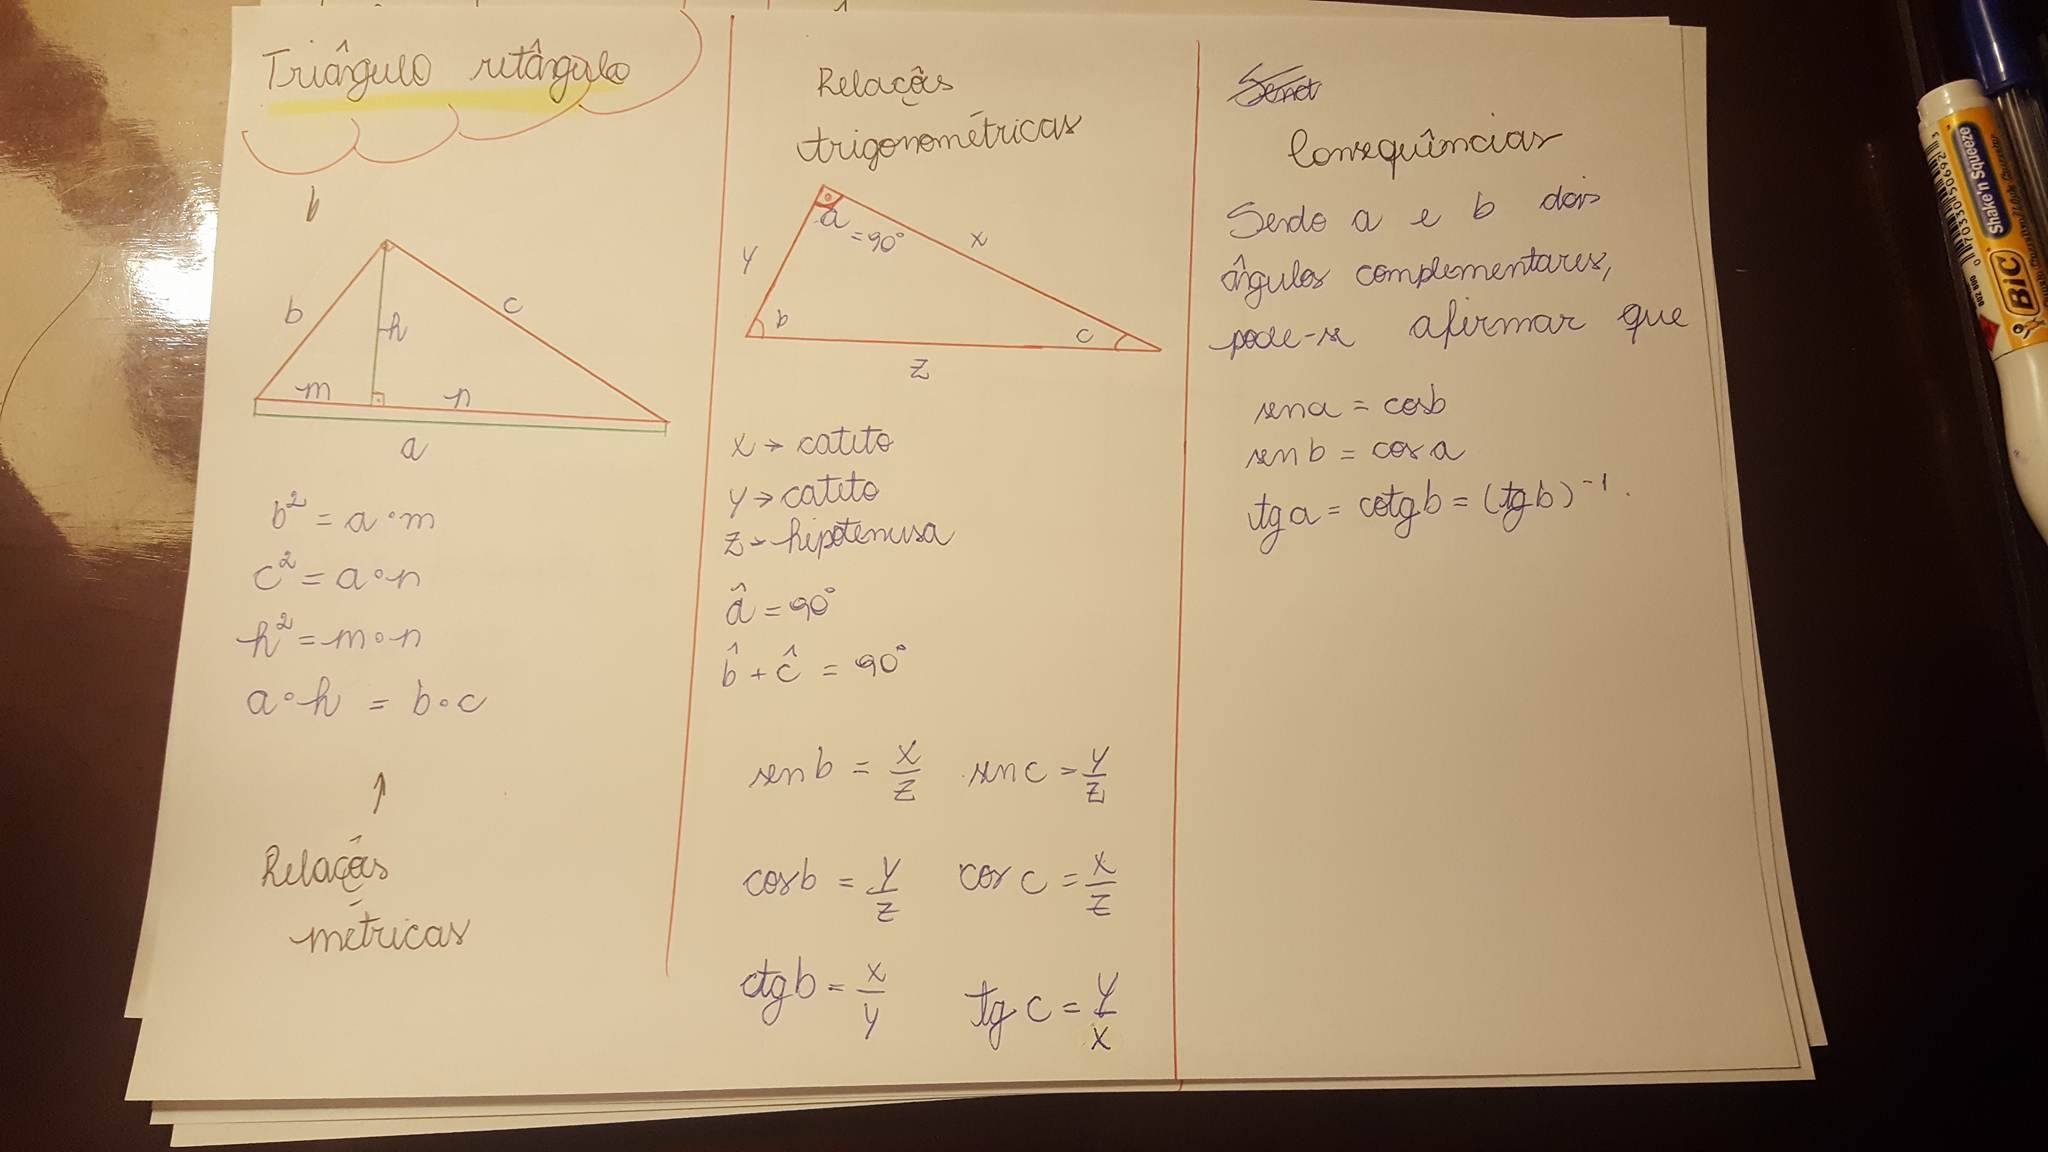 Triângulo retângulo
b
b
h
c
m
n
a
b² = a·m
c² = a·n
h² = m·n
a·h = b·c
↑
Relações
métricas
Relações
trigonométricas
a
= 90°
y
x
b
c
z
x → cateto
y → cateto
z → hipotenusa
â = 90°
b̂ + ĉ = 90°
sen b = x/z sen c = y/z
cos b = y/z cos c = x/z
tg b = x/y tg c = y/x
Consequências
Sendo a e b dois
ângulos complementares,
pode-se afirmar que
sen a = cos b
sen b = cos a
tg a = cotg b = (tg b)⁻¹.
BIC
Shake'n Squeeze